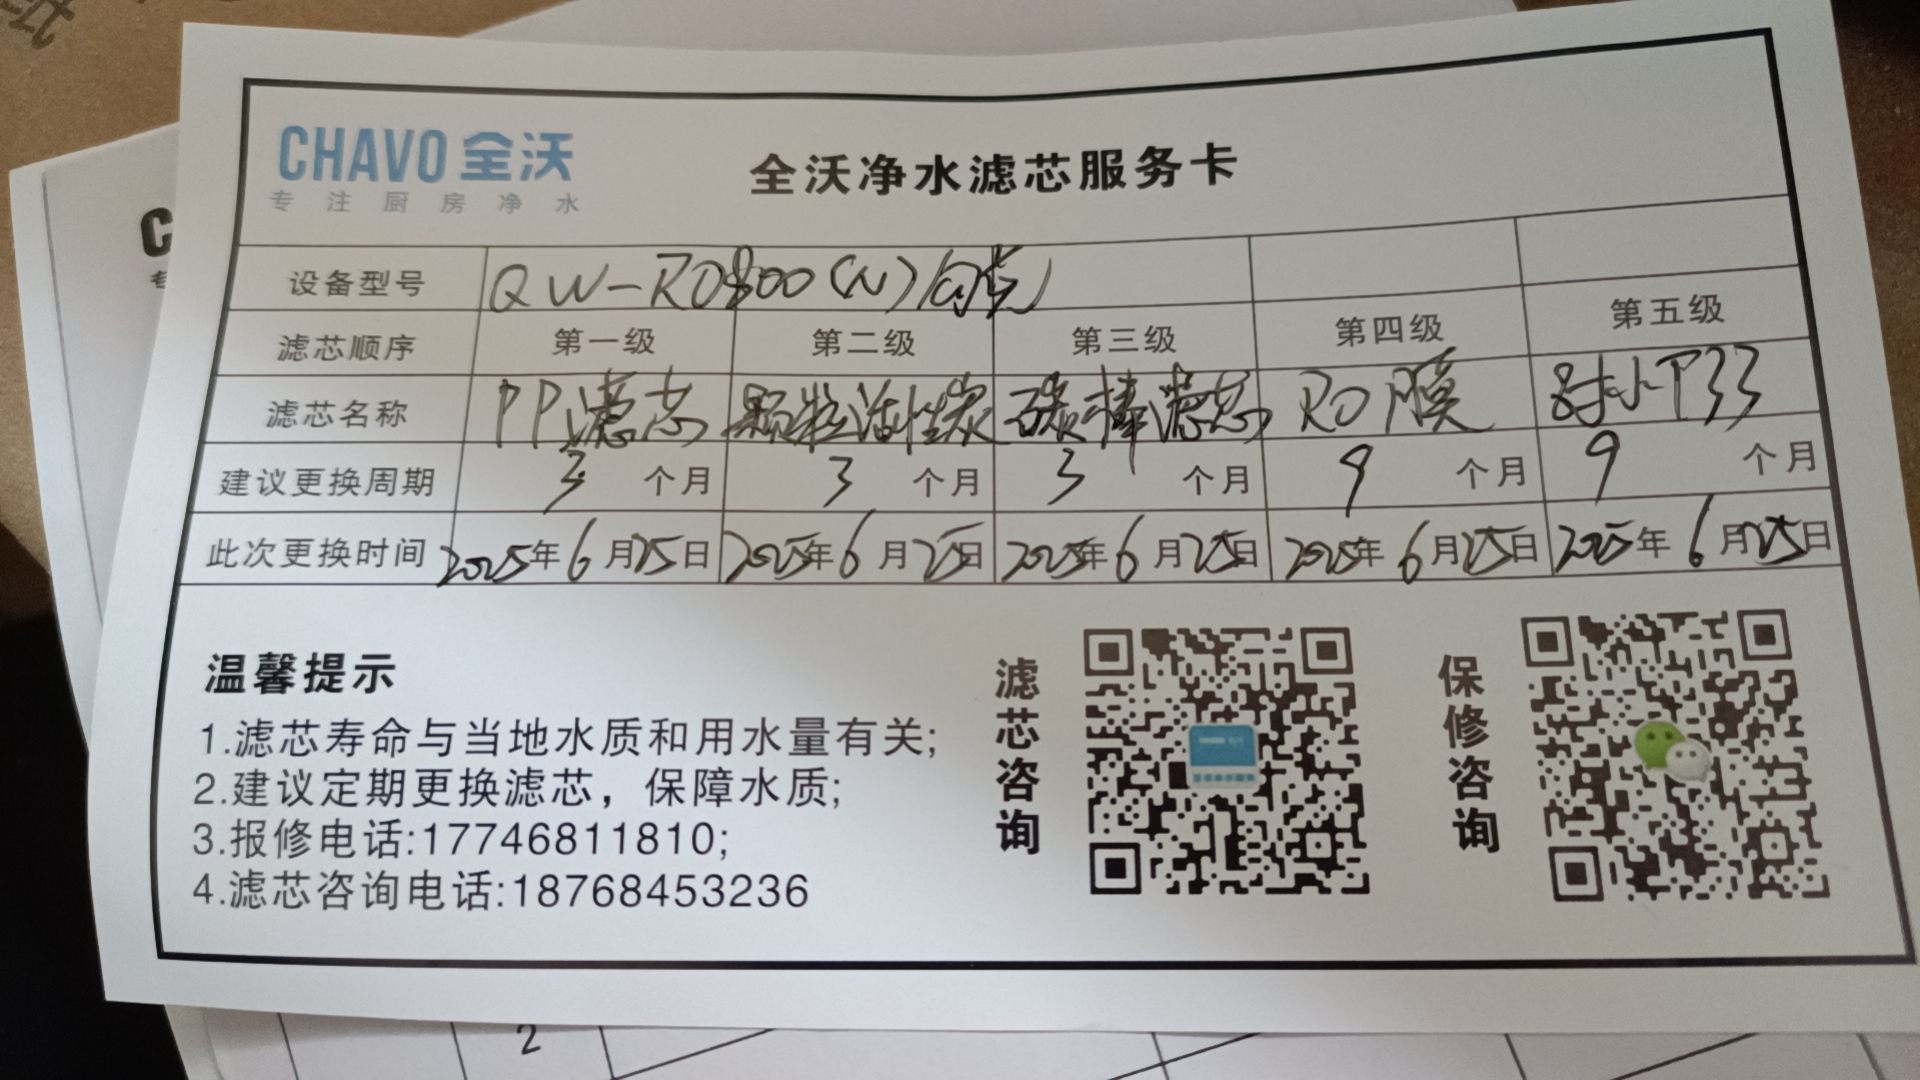 CHAVO 全沃
专注厨房净水
全沃净水滤芯服务卡
设备型号 QW-RO800(N)
滤芯顺序 第一级 第二级 第三级 第四级 第五级
滤芯名称 PP滤芯 颗粒活性炭 碳棒滤芯 RO膜 T33
建议更换周期 3个月 3个月 3个月 9个月 9个月
此次更换时间 2025年6月25日 2025年6月25日 2025年6月25日 2025年6月25日 2025年6月25日
温馨提示
1.滤芯寿命与当地水质和用水量有关;
2.建议定期更换滤芯，保障水质;
3.报修电话:17746811810;
4.滤芯咨询电话:18768453236
滤芯咨询
保修咨询
2